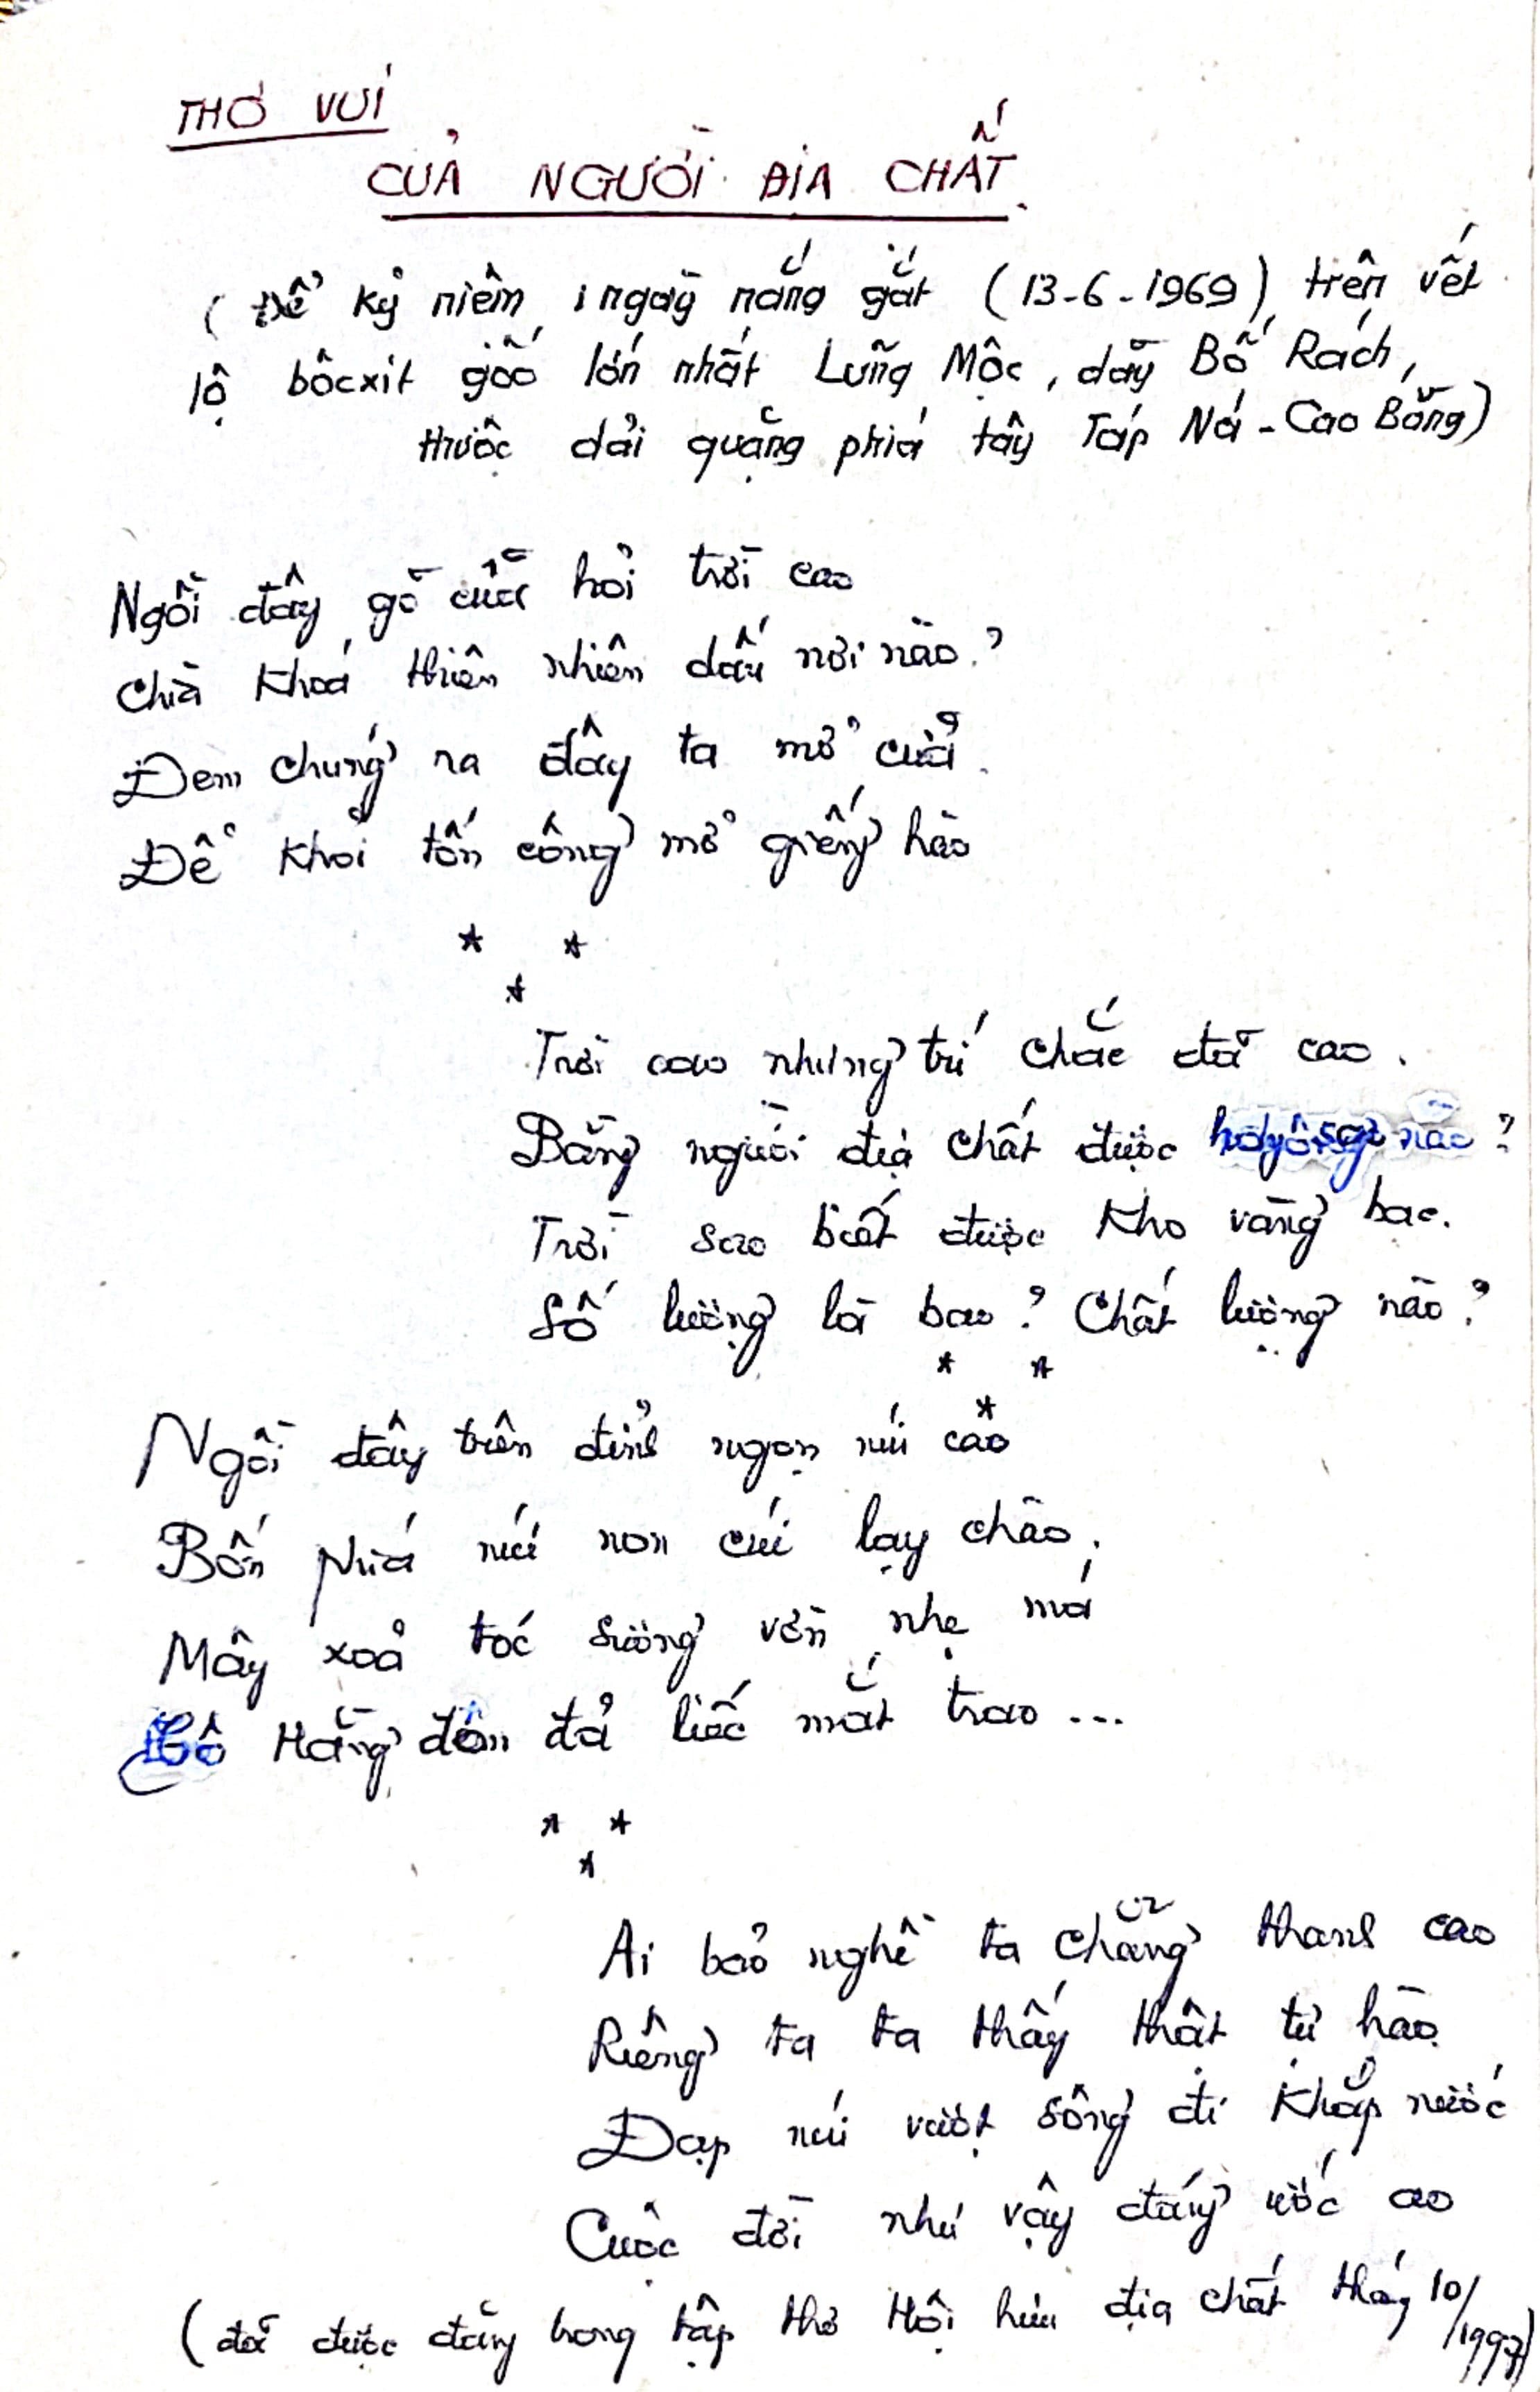 THƠ VUI
CỦA NGƯỜI ĐỊA CHẤT.
(Để kỷ niệm 1 ngày nắng gắt (13-6-1969) trên vết
lộ bôcxit gốc lớn nhất Lũng Mộc, dãy Bố Rách,
thuộc dải quặng phía tây Táp Ná - Cao Bằng)
Ngồi đây gõ cửa hỏi trời cao
Chìa khoá thiên nhiên dấu nơi nào?
Đem chúng ra đây ta mở cửa.
Để khỏi tốn công mở giếng hào
* *
*
Trời cao nhưng trí chắc đã cao.
Bằng người địa chất được hay nào?
Trời sao biết được kho vàng bạc.
Số lượng là bao? Chất lượng nào?
* *
*
Ngồi đây trên đỉnh ngọn núi cao
Bốn phía núi non cúi lạy chào.
Mây xoả tóc sương vờn nhẹ má
Cô Hằng đon đả liếc mắt trao...
* *
*
Ai bảo nghề ta chẳng thanh cao
Riêng ta ta thấy thật tự hào
Đạp núi vượt sông đi khắp nước
Cuộc đời như vậy đáng ước ao
(đã được đăng trong tập thơ Hội hưu địa chất tháng 10/1997)